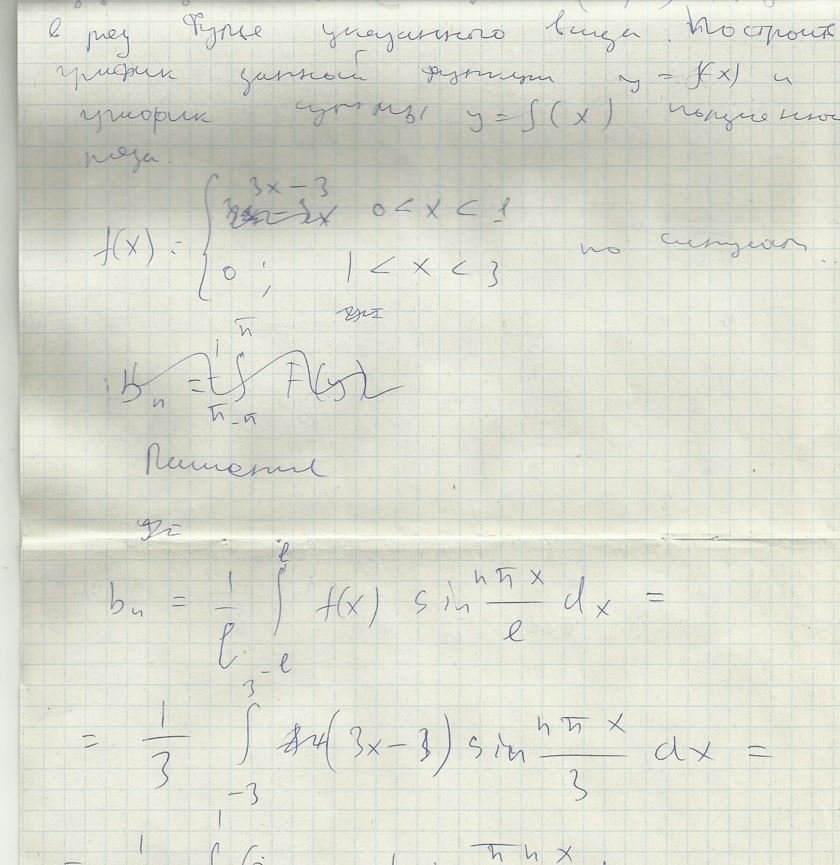 в ряд Фурье указанного вида. Построить
график данной функции y = f(x) и
график суммы y = S(x) полученного
ряда.
f(x) = { 3x - 3 0 < x < 1
0 ; 1 < x < 3 по синусам
b_n = 1/π ∫_{-π}^{π} F(y)
Решение
b_n = 1/l ∫_{-l}^{l} f(x) sin nπx/l dx =
= 1/3 ∫_{-3}^{3} (3x - 3) sin nπx/3 dx =